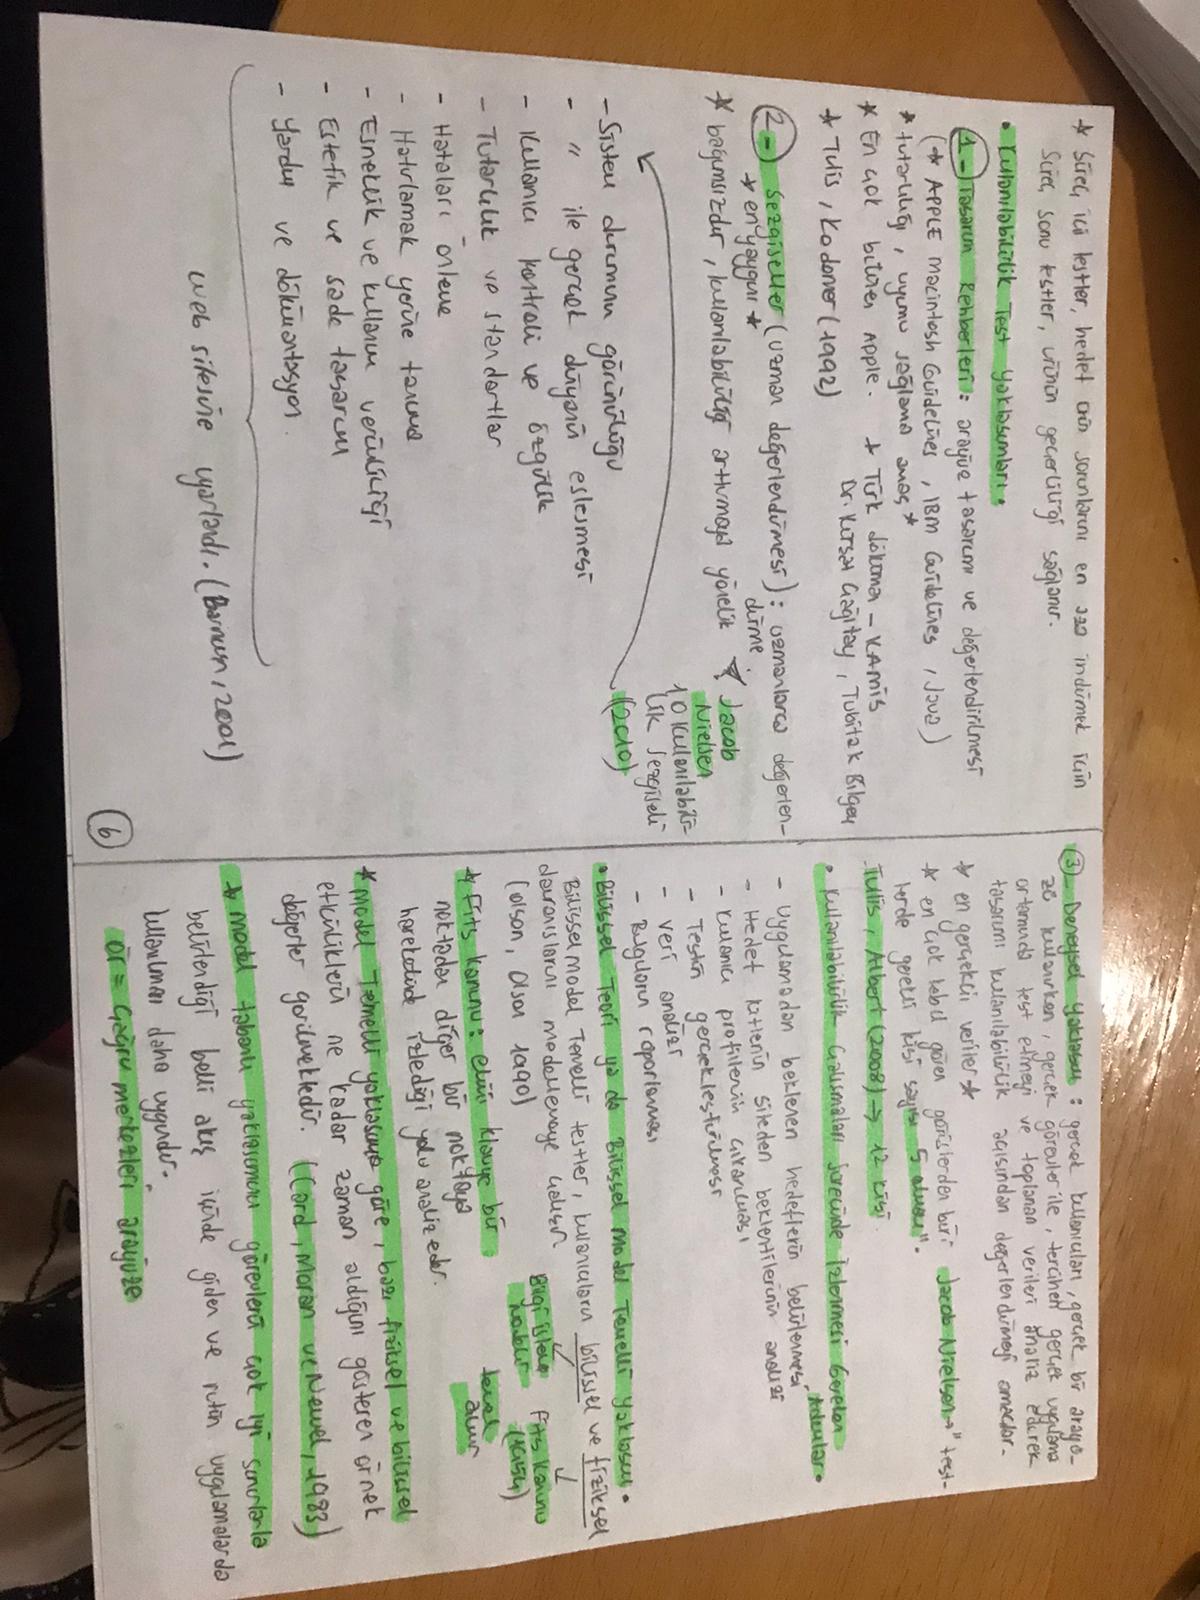 * Süreç içi testler, hedef ürün sorunlarını en aza indirmek için
Süreç sonu testler, ürünün geçerliliği sağlanır.
• Kullanılabilirlik Test Yaklaşımları •
1- Tasarım Rehberleri: arayüz tasarımı ve değerlendirilmesi
(* APPLE Macintosh Guidelines, IBM Guidelines, Java)
* tutarlılığı, uyumu sağlama amaç *
* En çok bilinen Apple. * Türk döküman - KAMİS
Dr. Kürşat Çağıltay, Tubitak Bilgem
* Tulis, Kodomer (1992)
2- Sezgiseller (uzman değerlendirmesi): uzmanlarca değerlen-
dirme.
* en yaygın *
* bağımsızdır, kullanılabilirliği arttırmaya yönelik
Jacob
Nielsen
10 Kullanılabilir-
lik Sezgiseli
(2010)
- Sistem durumunun görünürlüğü
- " ile gerçek dünyanın eşleşmesi
- Kullanıcı kontrolü ve özgürlük
- Tutarlılık ve standartlar
- Hataları önleme
- Hatırlamak yerine tanıma
- Esneklik ve kullanım verimliliği
- Estetik ve sade tasarım
- Yardım ve dökümantasyon.
web sitesine uyarlandı. (Barnum, 2001)
6
3- Deneysel Yaklaşım: gerçek kullanıcıları, gerçek bir arayü-
zü kullanırken, gerçek görevler ile, tercihen gerçek uygulama
ortamında test etmeyi ve toplanan verileri analiz ederek
tasarımı kullanılabilirlik açısından değerlendirmeyi amaçlar.
* en gerçekçi veriler *
* en çok kabul gören görüşlerden biri Jacob Nielsen → "test-
lerde gerekli kişi sayısı 5 olmalı".
Tulis, Albert (2008) → 12 kişi
• Kullanılabilirlik Çalışmaları Sürecinde İzlenmesi Gereken
Adımlar •
- Uygulamadan beklenen hedeflerin belirlenmesi
- Hedef kitlenin siteden beklentilerinin analizi
- Kullanıcı profillerinin çıkarılması
- Testin gerçekleştirilmesi
- Veri analizi
- Bulguların raporlanması
• Bilişsel Teori ya da Bilişsel Model Temelli Yaklaşım •
Bilişsel Model Temelli testler, kullanıcıların bilişsel ve fiziksel
davranışlarını modellemeye çalışır.
(Olson, Olson 1990)
Bilgi işleme
modeli
Fits Kanunu
(1954)
temel
alınır
* Fits Kanunu: elini klavye bir
noktadan diğer bir noktaya
hareketinde izlediği yolu analiz eder.
* Model Temelli yaklaşıma göre, bazı fiziksel ve bilişsel
etkinliklerin ne kadar zaman aldığını gösteren örnek
değerler görülmektedir. (Card, Moran ve Newel, 1983)
* Model tabanlı yaklaşımının görevlerin çok iyi sınırlarla
belirlendiği belli akış içinde giden ve rutin uygulamalarda
kullanılması daha uygundur.
ör = Çağrı merkezleri arayüze